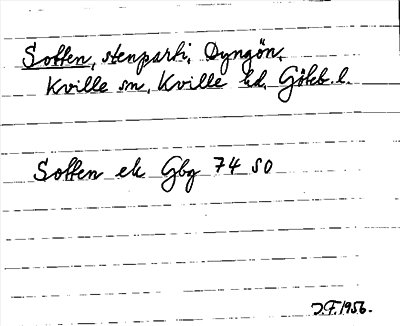 Sotten, stenparti, Dyngön,
Kville sn, Kville hd, Göteb. l.
Sotten ek Gbg 74 SO
J.F. 1956.